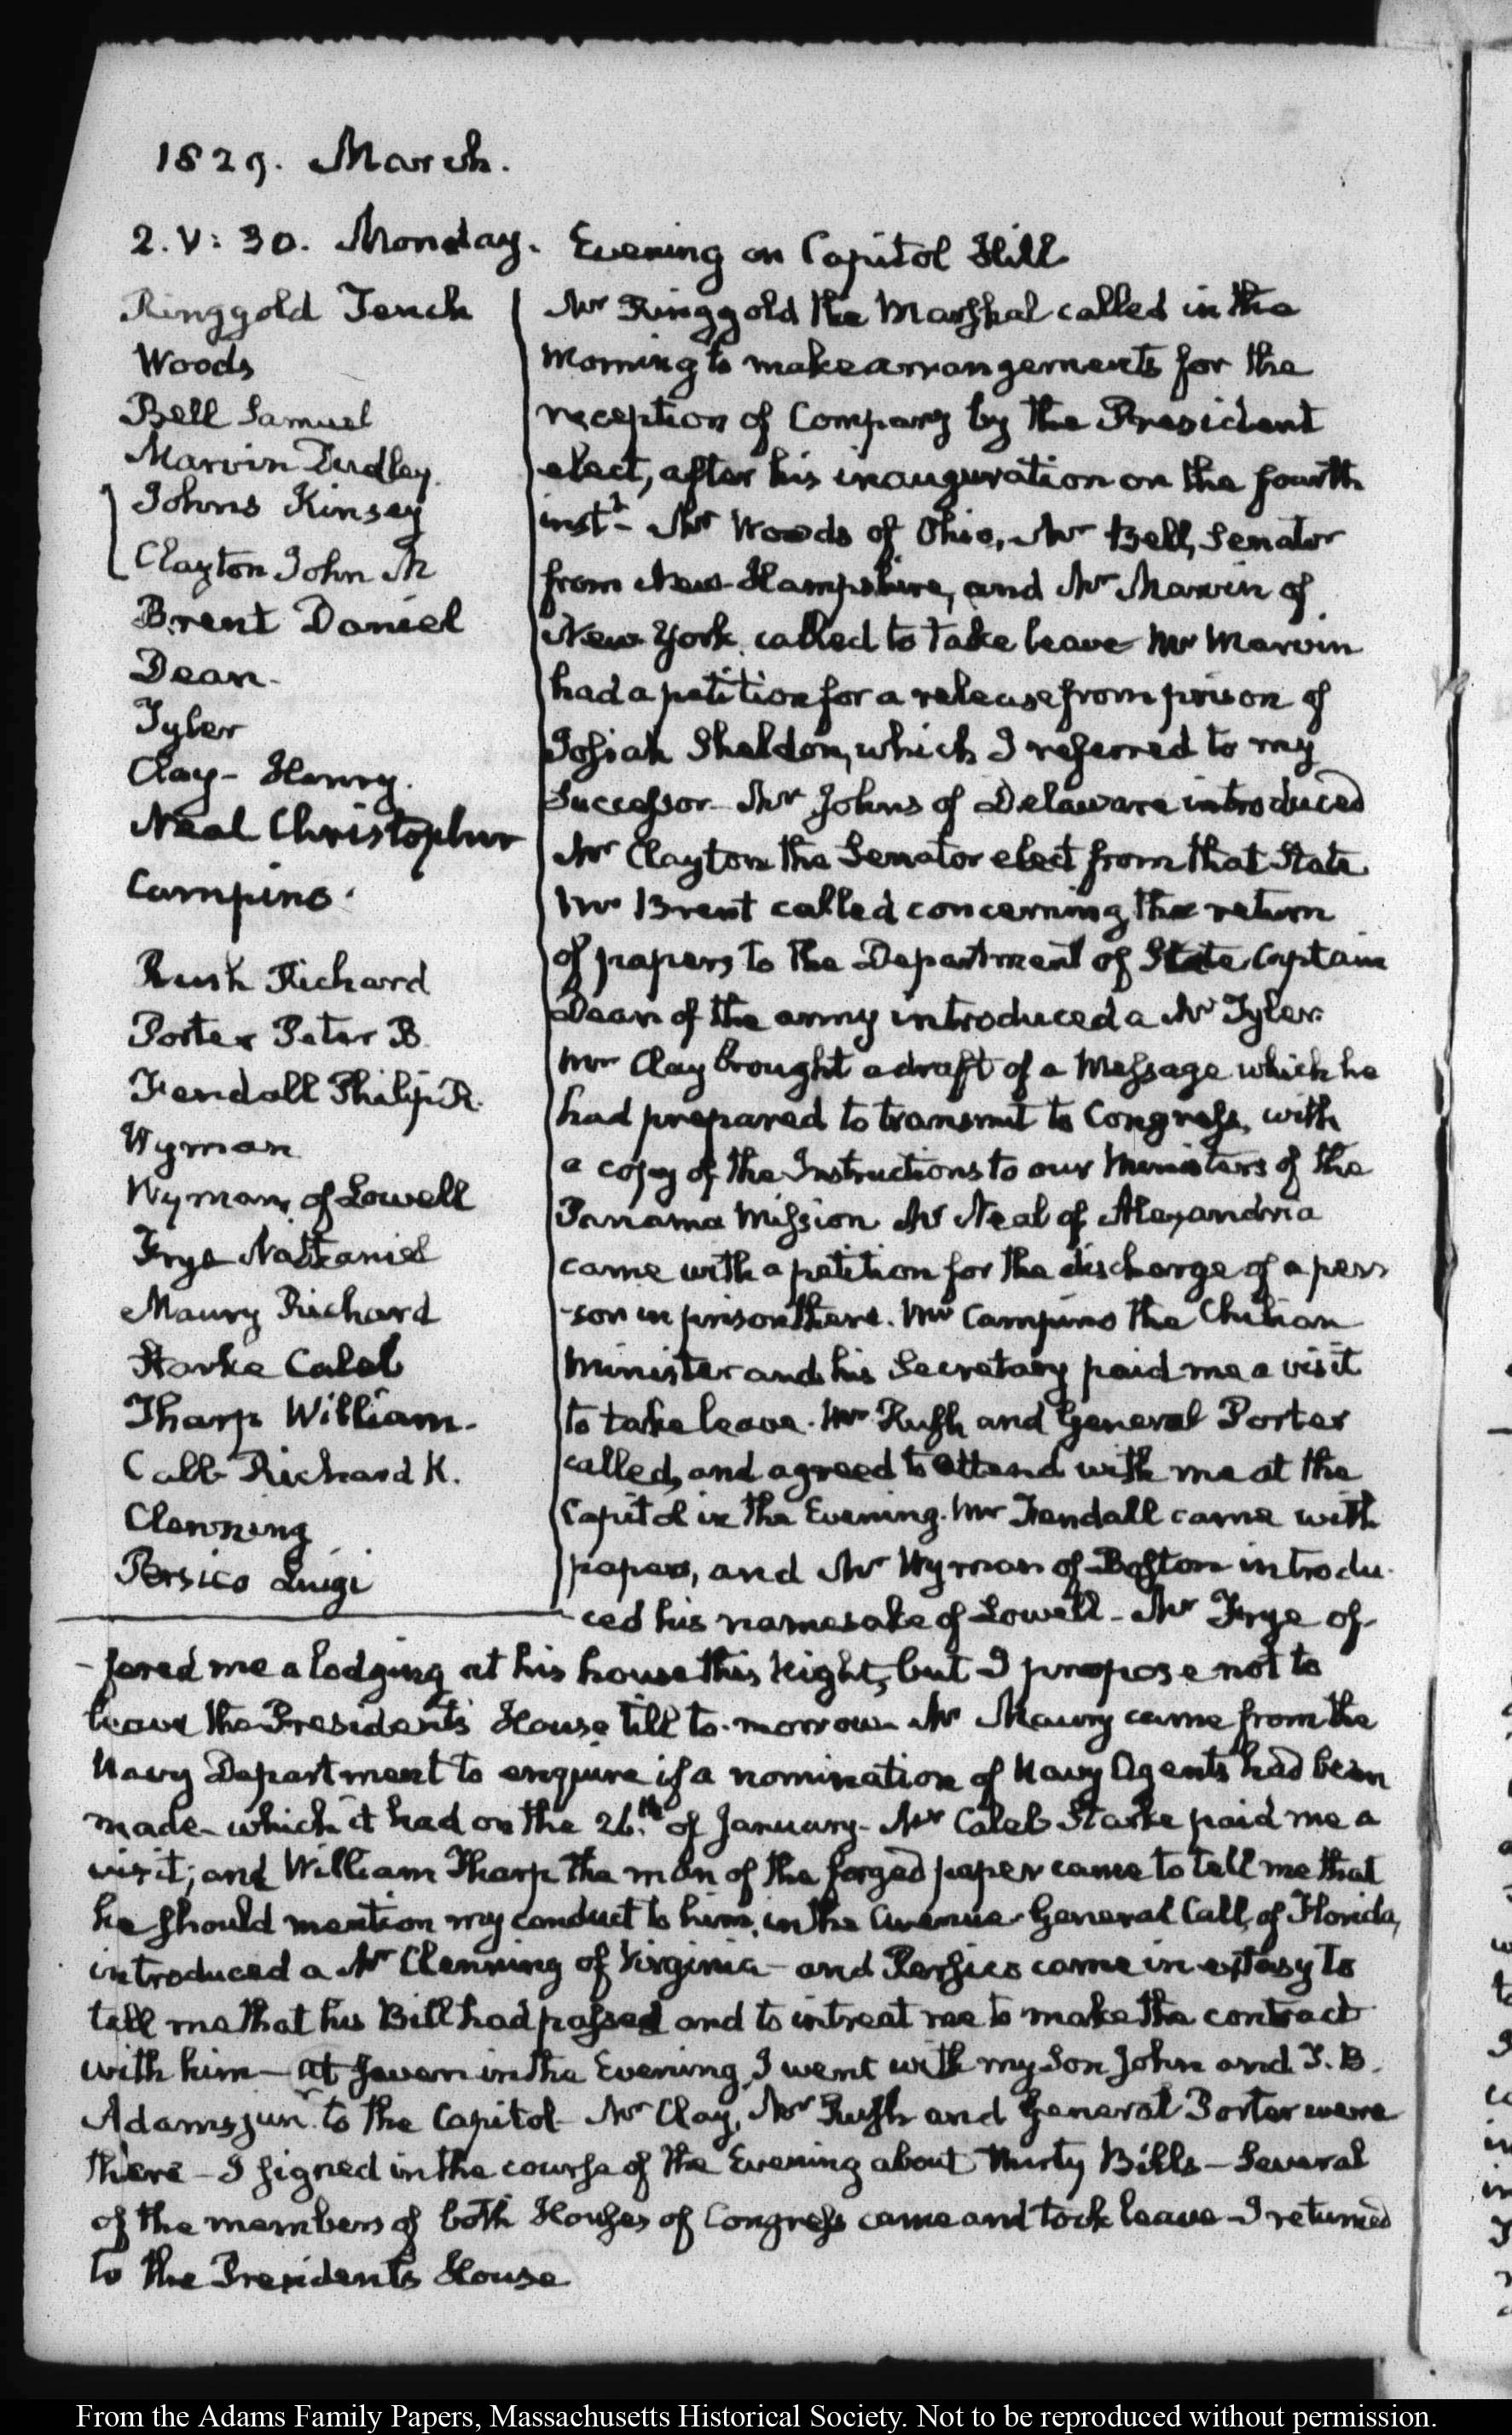 1829. March.
2. V: 30. Monday. Evening on Capitol Hill
Ringgold Tench
Woods
Bell Samuel
Marvin Dudley.
Johns Kinsey
Clayton John M
Brent Daniel
Dean.
Tyler
Clay - Henry.
Neal Christopher
Campino.
Rush Richard
Porter Peter B.
Fendall Philip R.
Wyman
Wyman, of Lowell
Frye Nathaniel
Maury Richard
Starke Caleb
Tharp William.
Call Richard K.
Clenning
Persico Luigi
Mr Ringgold the Marshal called in the
morning to make arrangements for the
reception of Company by the President
elect, after his inauguration on the fourth
instt- Mr Woods of Ohio, Mr Bell, Senator
from New-Hampshire, and Mr Marvin of
New York, called to take leave Mr Marvin
had a petition for a release from prison of
Josiah Sheldon, which I referred to my
Successor- Mr Johns of Delaware introduced
Mr Clayton the Senator elect from that State
Mr Brent called concerning the return
of papers to the Department of State. Captain
Dean of the army introduced a Mr Tyler.
Mr Clay brought a draft of a Message which he
had prepared to transmit to Congress, with
a copy of the Instructions to our Ministers of the
Panama Mission Mr Neal of Alexandria
came with a petition for the discharge of a per
-son in prison there. Mr Campino the Chilian
Minister and his Secretary paid me a visit
to take leave. Mr Rush and General Porter
called, and agreed to attend with me at the
Capitol in the Evening. Mr Fendall came with
papers, and Mr Wyman of Boston introdu-
ced his namesake of Lowell - Mr Frye of-
-fered me a lodging at his house this Night, but I propose not to
leave the President's House till to-morrow Mr Maury came from the
Navy Department to enquire if a nomination of Navy Agents had been
made- which it had on the 26.th of January- Mr Caleb Starke paid me a
visit; and William Tharp the man of the forged paper came to tell me that
he should mention my conduct to him, in the Avenue- General Call, of Florida,
introduced a Mr Clenning of Virginia- and Persico came in extasy to
tell me that his Bill had passed and to intreat me to make the contract
with him- at seven in the Evening, I went with my Son John and T. B.
Adams junr to the Capitol- Mr Clay, Mr Rush and General Porter were
there- I signed in the course of the Evening about thirty Bills- Several
of the members of both Houses of Congress came and took leave- I returned
to the Presidents House
From the Adams Family Papers, Massachusetts Historical Society. Not to be reproduced without permission.